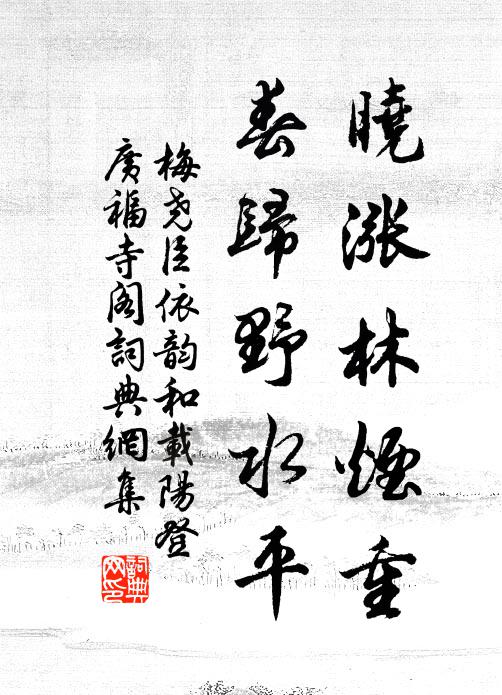 曉漲林煙重
春歸野水平
梅堯臣依韵和載陽登
廣福寺閣詞典網集
詞典网印